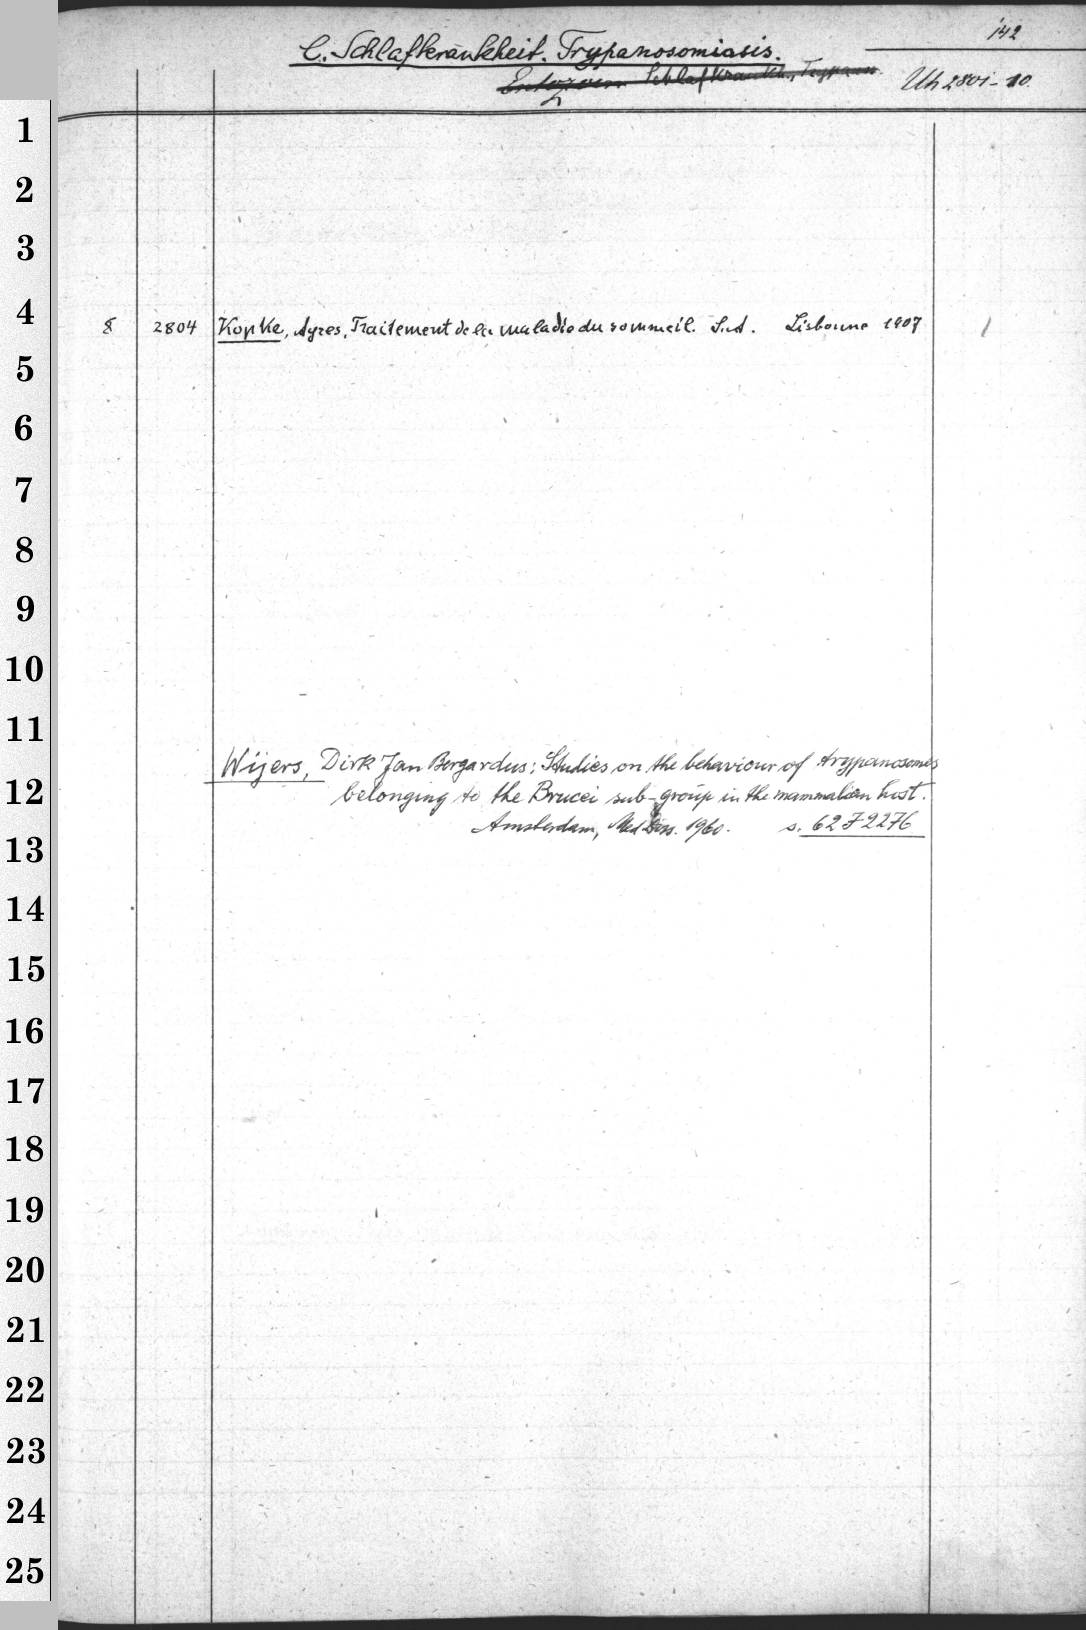 142
C. Schlafkrankheit. Trypanosomiasis.
Entozoen. Schlafkrankh., Trypann.
Uh 2801-10.
1
2
3
4
8 2804 Kopke, Ayres, Traitement de la maladie du sommeil. S.A. Lisbonne 1907
5
6
7
8
9
10
11
Wijers, Dirk Jan Bergardus: Studies on the behaviour of trypanosomes
12
belonging to the Brucei sub-group in the mammalian host.
Amsterdam, Med Diss. 1960. s. 62 F 2276
13
14
15
16
17
18
19
20
21
22
23
24
25